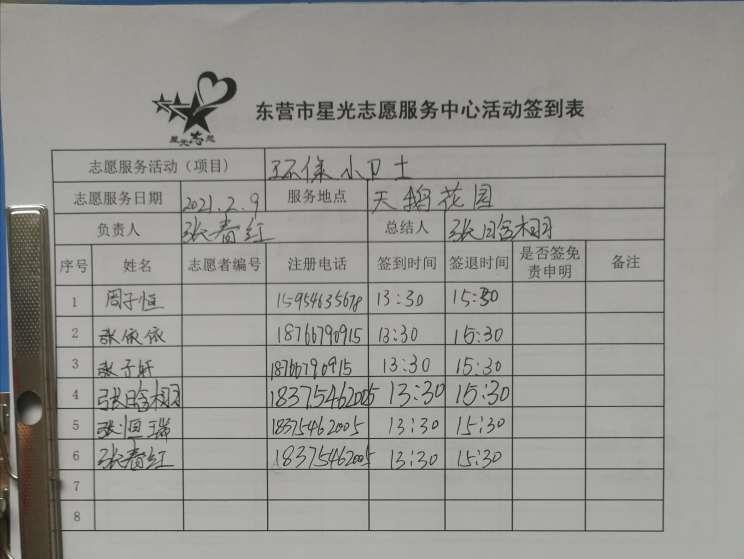 星光志愿
东营市星光志愿服务中心活动签到表
志愿服务活动（项目） 环保小卫士
志愿服务日期 2021.2.9 服务地点 天鹅花园
负责人 张春红 总结人 张晗栩
序号 姓名 志愿者编号 注册电话 签到时间 签退时间 是否签免责申明 备注
1 周子恒 15954635678 13:30 15:30
2 张依依 18766790915 13:30 15:30
3 张子轩 18766790915 13:30 15:30
4 张晗栩 18375462005 13:30 15:30
5 张恒瑞 18375462005 13:30 15:30
6 张春红 18375462005 13:30 15:30
7
8